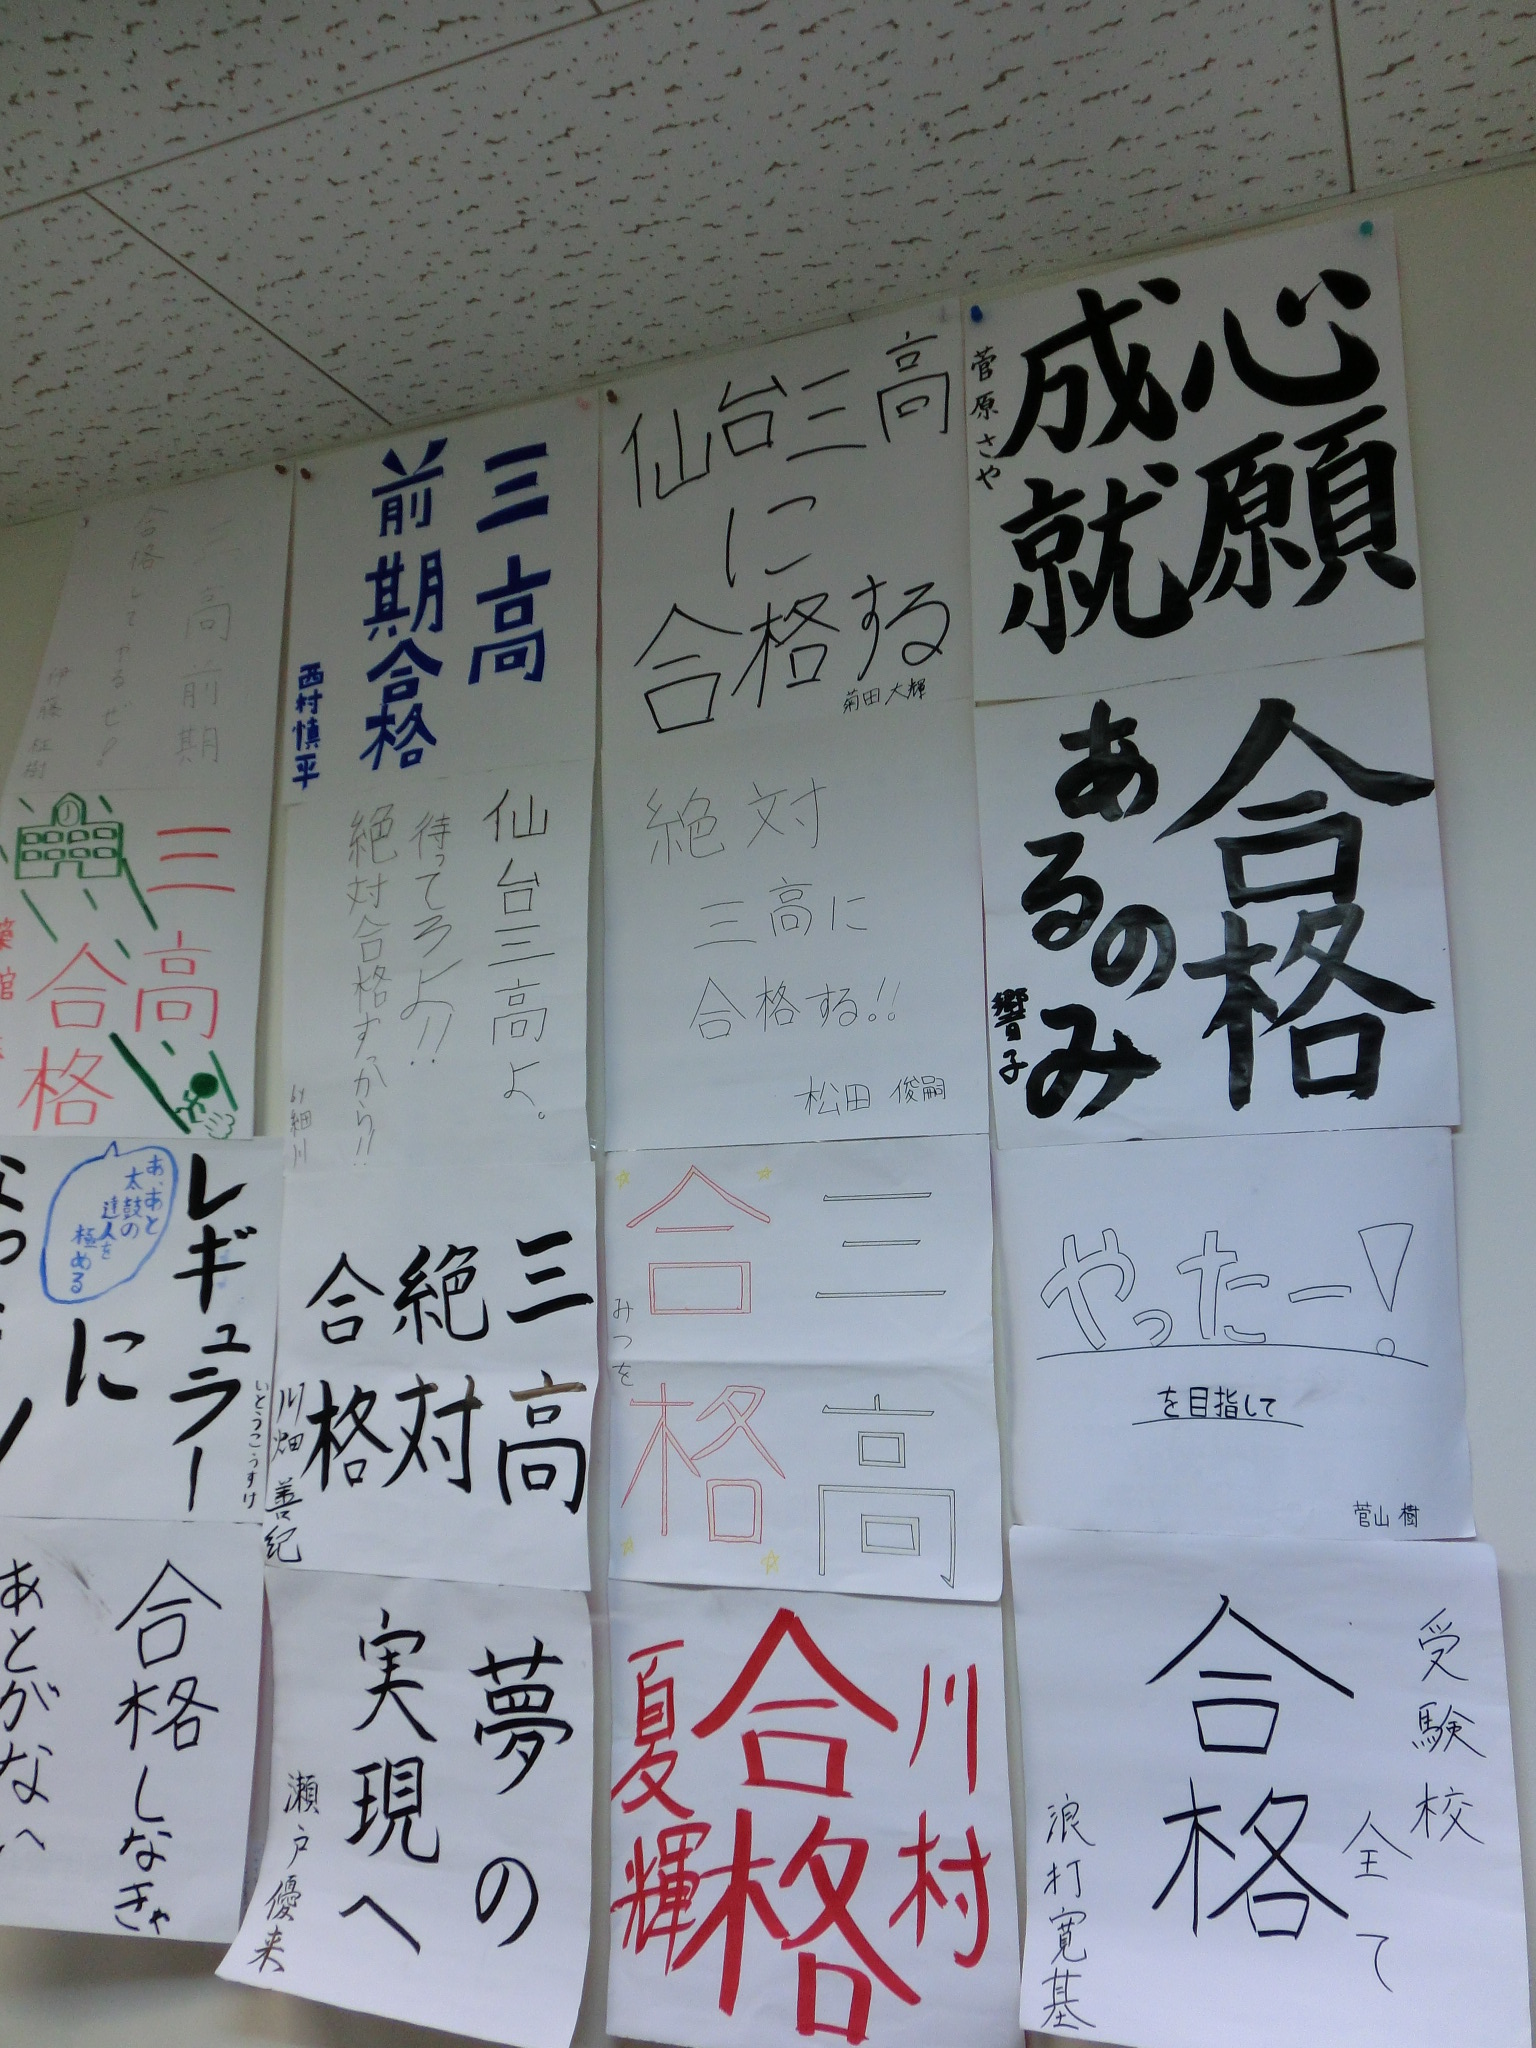 心願
成就
菅原さや
合格
あるのみ
響子
やったー!
を目指して
菅山 樹
受験校
全て
合格
浪打寛基
仙台三高
に
合格する
菊田大輝
絶対
三高に
合格する!!
松田 俊嗣
三高
合格
みつを
川村
合格
夏輝
三高
前期合格
西村慎平
仙台三高よ。
待ってろよ!!
絶対合格すっから!!
by 細川
三高
絶対
合格
川畑 善紀
夢の
実現へ
瀬戸優来
三高前期
合格してやるぜ!
伊藤 柾樹
三高
合格
レギュラー
に
あ、あと
太鼓の
達人を
極める
いとうこうすけ
合格しなきゃ
あとがなへ